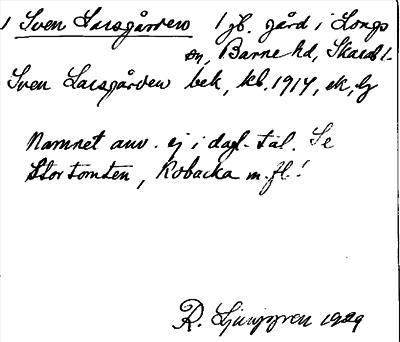 1 Sven Larsgården 1 jb. gård i Longs
sn, Barne hd, Skarab l.
Sven Larsgården bek, kb. 1917, ek, lg
Namnet anv. ej i dagl. tal. Se
Stortomten, Robacka m.fl.!
R. Ljunggren 1929